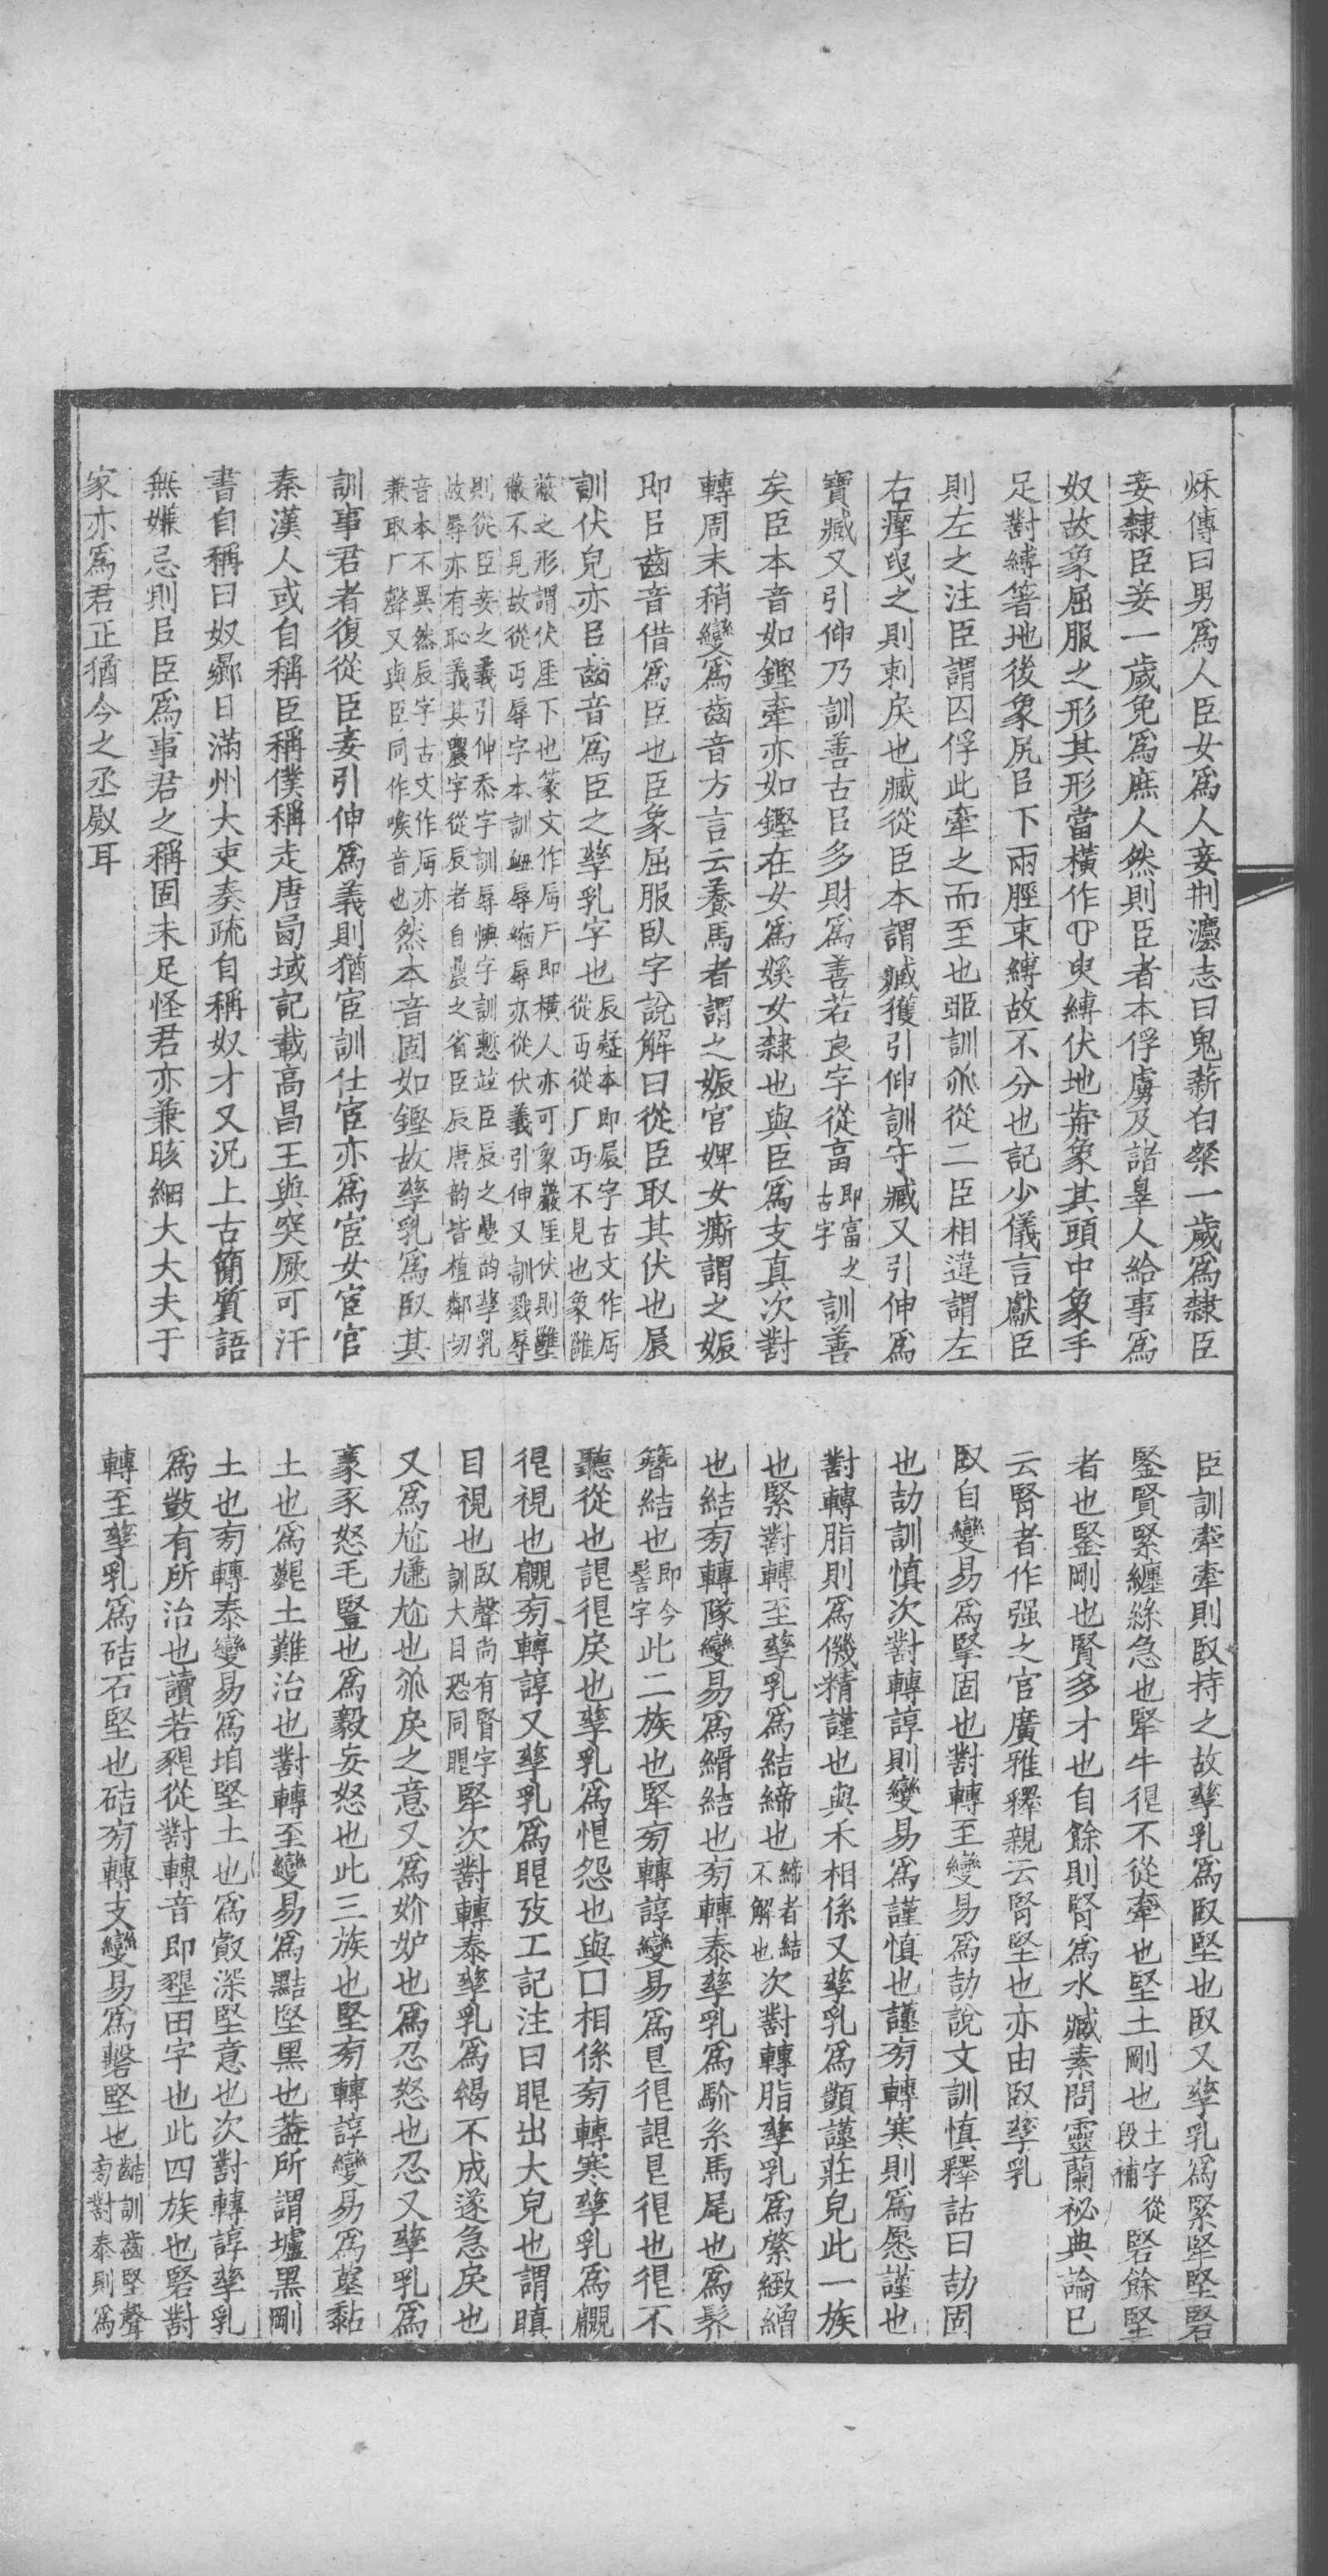 烁傳曰男爲人臣女爲人妾荆灋志曰鬼薪白粲一歲爲隸臣
妾隸臣妾一歲免爲庶人然則臣者本俘虜及諸辠人給事爲
奴故象屈服之形其形當橫作臾縛伏地歬象其頭中象手
足對縛箸地後象尻㠯下兩脛束縛故不分也記少儀言獻臣
則左之注臣謂囚俘此牽之而至也𦣞訓𠈌從二臣相違謂左
右㢑曳之則剌戾也臧從臣本謂臧獲引伸訓守臧又引伸爲
寶臧又引伸乃訓善古㠯多財爲善若良字從畐即富之古字訓善
矣臣本音如鏗牽亦如鏗在女爲娺女隸也與臣爲支真次對
轉周末稍變爲齒音方言云養馬者謂之娠官婢女廝謂之娠
即㠯齒音借爲臣也臣象屈服臥字說解曰從臣取其伏也㞋
訓伏皃亦㠯齒音爲臣之孳乳字也辰疑本即㞋字古文作𠨷從丏從厂丏不見也象雝
蔽之形謂伏厓下也篆文作𠨷厂即橫人亦可象巖厓伏則壅
蔽不見故從丏辱字本訓衄辱縮辱亦從伏義引伸又訓戮辱
則從臣妾之義引伸忝字訓辱㥏字訓慙竝臣辰之疊韵孳乳
故辱亦有恥義其農字從辰者自晨之省臣辰唐韵皆植鄰切
音本不異然辰字古文作𠨷亦兼取厂聲又與臣同作喉音也然本音固如鏗故孳乳爲臤其
訓事君者復從臣妾引伸爲義則猶宦訓仕宦亦爲宦女宦官
秦漢人或自稱臣稱僕稱走唐㞾域記載高昌王與突厥可汗
書自稱曰奴鄉日滿州大吏奏疏自稱奴才又況上古簡質語
無嫌忌則㠯臣爲事君之稱固未足怪君亦兼晐細大大夫于
家亦爲君正猶今之丞尉耳
臣訓牽牽則臤持之故孳乳爲臤堅也臤又孳乳爲緊堅堅硻
鋻賢緊纏絲急也掔牛很不從牽也堅土剛也土字從段補硻餘堅
者也鋻剛也賢多才也自餘則腎爲水臧素問靈蘭祕典論已
云腎者作强之官廣雅釋親云腎堅也亦由臤孳乳
臤自變易爲掔固也對轉至變易爲劼說文訓慎釋詁曰劼固
也劼訓慎次對轉諄則變易爲謹慎也謹㫄轉寒則爲愿謹也
對轉脂則爲僟精謹也與禾相係又孳乳爲顗謹莊皃此一族
也緊對轉至孳乳爲結締也締者結不解也次對轉脂孳乳爲綮緻繒
也結㫄轉隊變易爲縎結也㫄轉泰孳乳爲馻系馬尾也爲髻
簪結也即今髻字此二族也掔㫄轉諄變易爲㫐很詪㫐很也很不
聽從也詪很戾也孳乳爲悢怨也與囗相係㫄轉寒孳乳爲覵
很視也覵㫄轉諄又孳乳爲睴攷工記注曰睴出大皃也謂瞋
目視也臤聲尚有䁂字訓大目恐同睴掔次對轉泰孳乳爲䙐不成遂急戾也
又爲尬尲尬也𠈌戾之意又爲妎妒也爲忍怒也忍又孳乳爲
豙豕怒毛豎也爲毅妄怒也此三族也堅㫄轉諄變易爲墓黏
土也爲囏土難治也對轉至變易爲黠堅黑也葢所謂壚黑剛
土也㫄轉泰變易爲垍堅土也爲㕡深堅意也次對轉諄孳乳
爲㱚有所治也讀若豤從對轉音即墾田字也此四族也硻對
轉至孳乳爲硈石堅也硈㫄轉支變易爲磬堅也䶗訓齒堅聲㫄對泰則爲